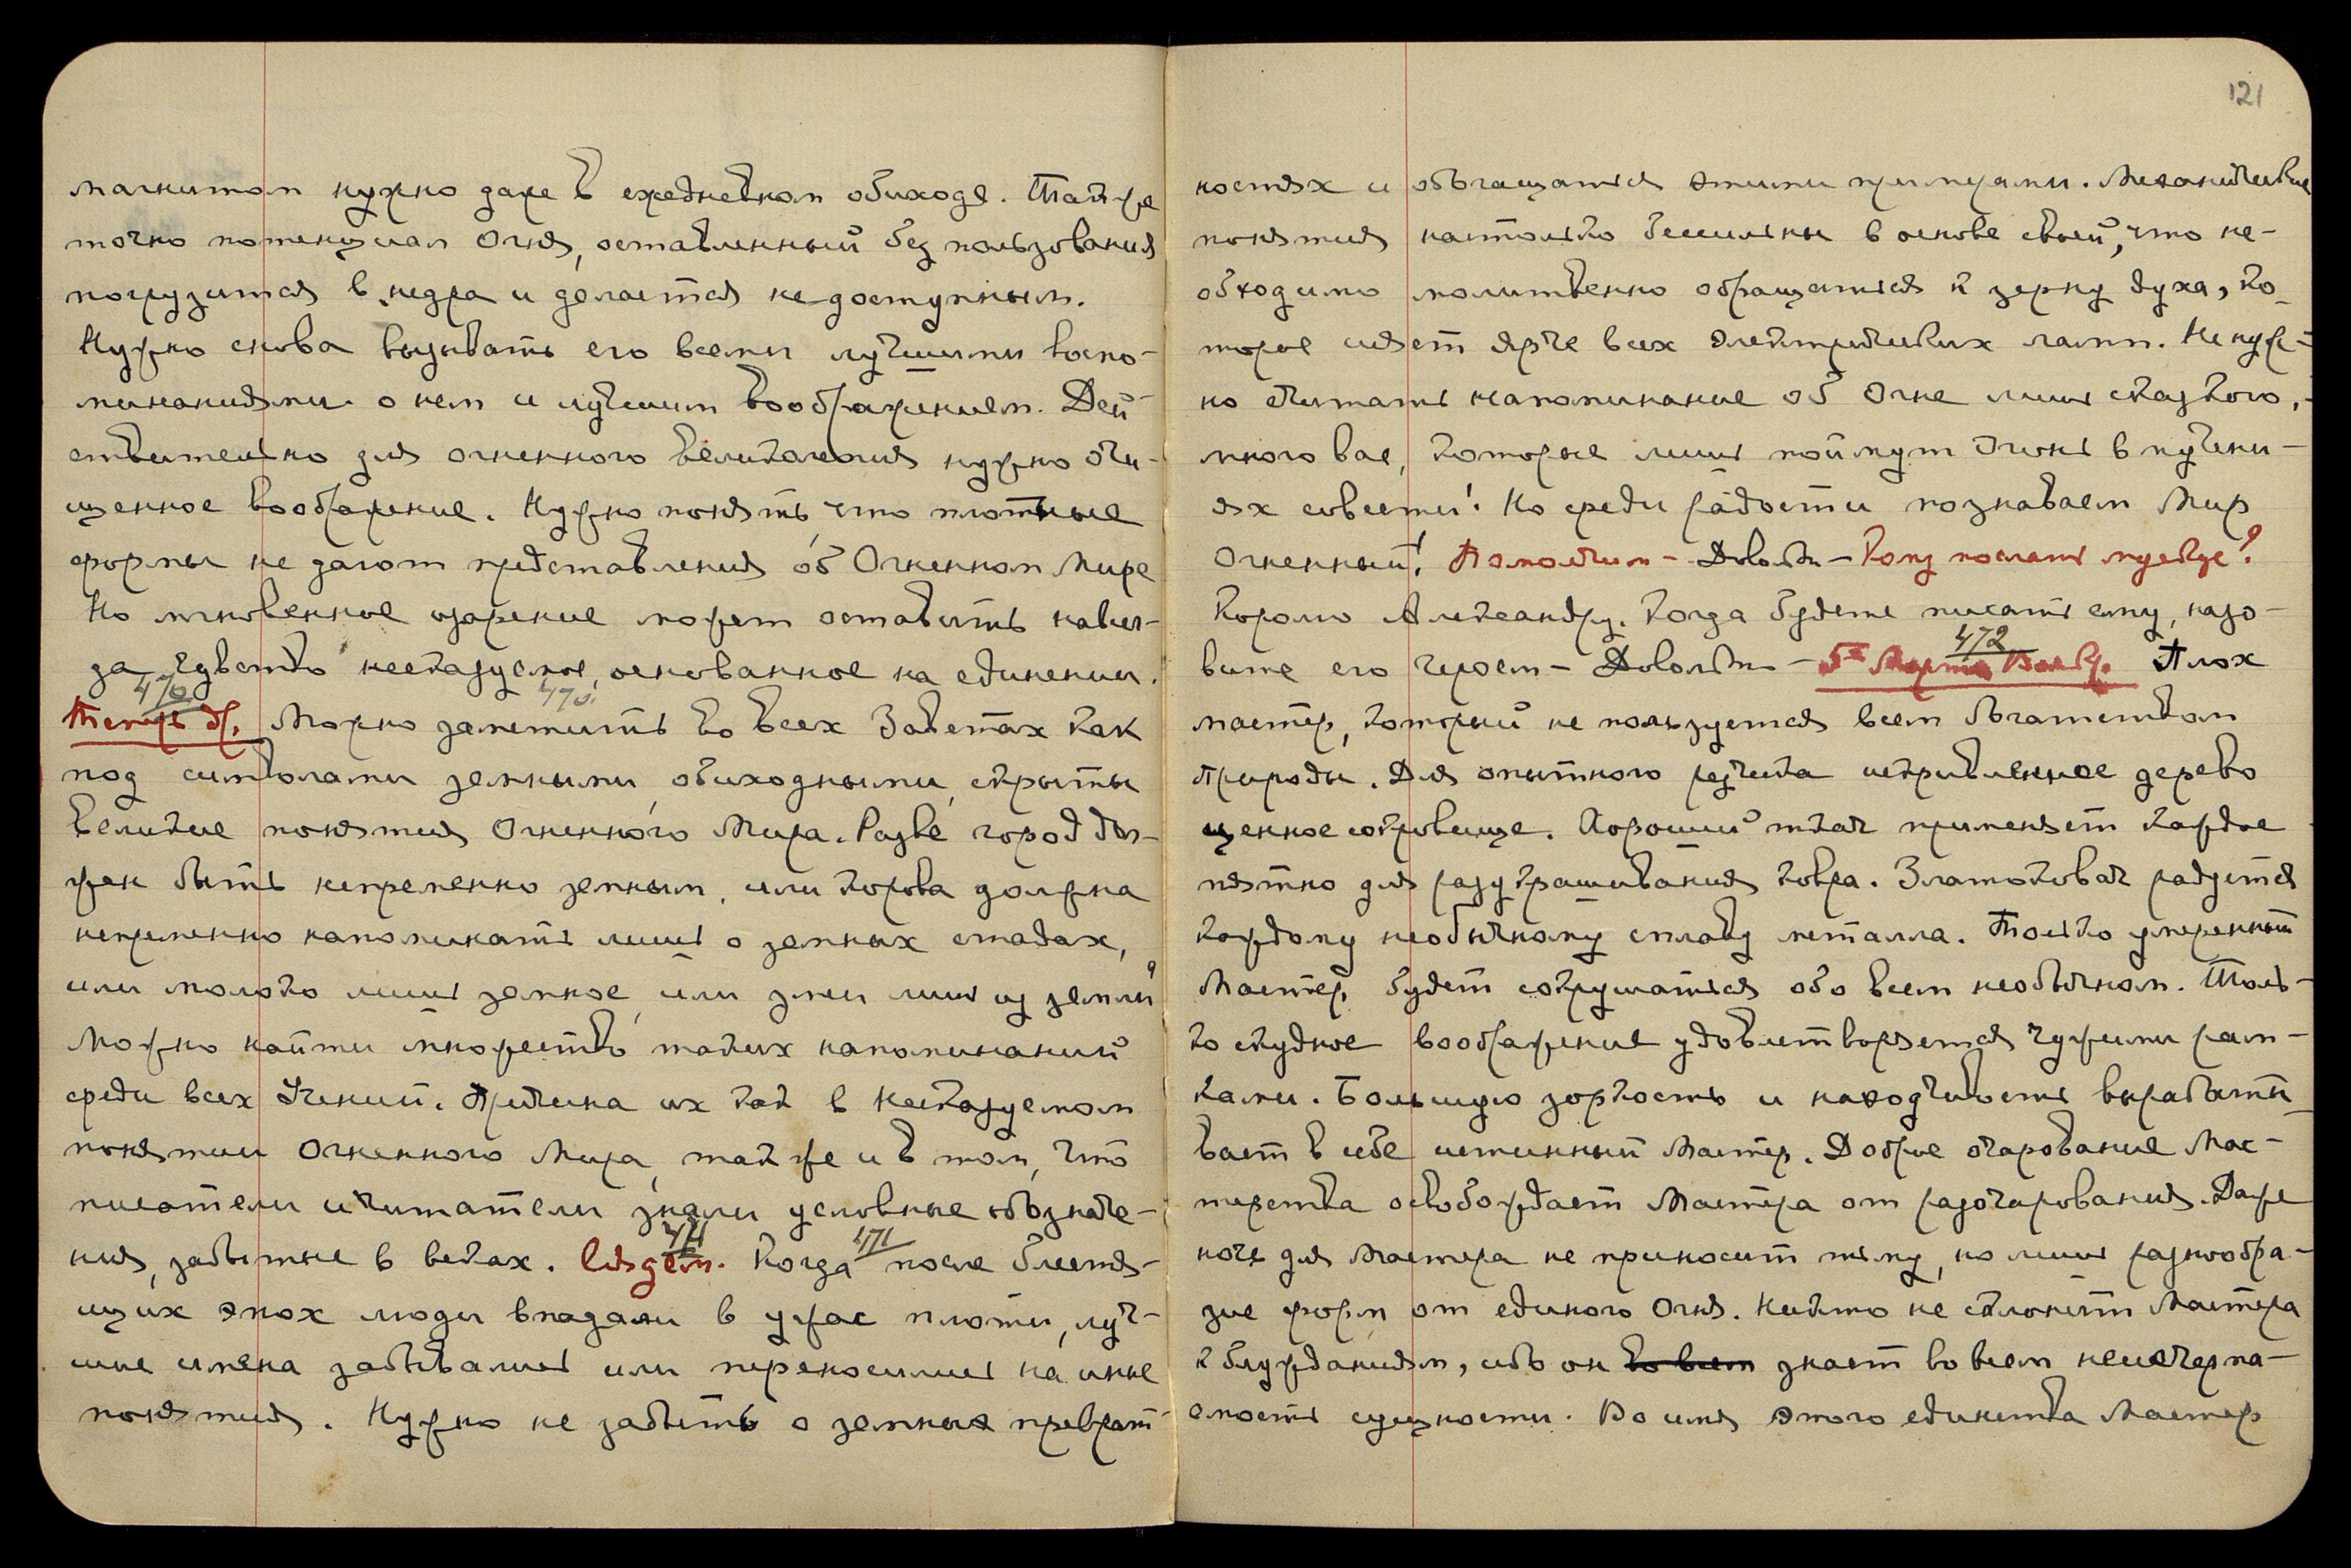 магнитом нужно даже в ежедневном обиходе. Так же
точно потенциал Огня, оставленный без пользования
погрузится в недра и делается недоступным.
Нужно снова вызывать его всеми лучшими воспо-
минаниями о нем и лучшим воображением. Дей-
ствительно для огненного великолепия нужно очи-
щенное воображение. Нужно понять что плотные
формы не дают представления об Огненном Мире
Но мгновенное озарение может оставить навсег-
да чувство несказуемое, основанное на единении.
470 470.
Теперь др. Можно заметить во всех Заветах как
под символами земными, обиходными, скрыты
великие понятия Огненного Мира. Разве город дол-
жен быть непременно земным, или корова должна
непременно напоминать лишь о земных стадах,
или молоко лишь земное, или змеи лишь из земли?
Можно найти множество таких напоминаний
среди всех Учений. Причина их как в Несказуемом
понятии Огненного Мира, так же и в том, что
писатели и читатели знали условные обозначе-
471 471
ния, забытые в веках. Сядем. Когда после блестя-
щих эпох люди впадали в ужас плоти, луч-
шие имена забывались или переносились на иные
понятия. Нужно не забыть о земных преврат-
121
ностях и обогащаться этими примерами. Механические
понятия настолько бессильны в основе своей, что не-
обходимо молитвенно обращаться к зерну духа, ко-
торое сияет ярче всех электрических ламп. Не нуж-
но считать напоминание об Огне лишь сказкою,
много вас, которые лишь поймут Огонь в пучени-
ях совести! Но среди радости познаваем Мир
Огненный! Помолчим – Довольно – Кому послать
Королю Александру. Когда будете писать ему, назо-
472
вите его героем – Довольно – 5го Марта Плох
мастер, который не пользуется всем богатством
природы. Для опытного резчика искривленное дерево
ценное сокровище. Хороший ткач применяет каждое
пятно для разукрашивания ковра. Златоковач радуется
каждому необычному сплаву металла. Только умеренный
Мастер будет сокрушаться обо всем необычном. Толь-
ко скудное воображение удовлетворяется чужими рам-
ками. Большую зоркость и находчивость вырабаты-
вает в себе истинный Мастер. Доброе очарование Мас-
терства освобождает Мастера от разочарования. Даже
ночь для Мастера не приносит тьму, но лишь разнообра-
зие форм от единого Огня. Никто не склонит Мастера
к блужданиям, ибо он во всем знает во всем неисчерпа-
емость сущности. Во имя этого единства Мастер